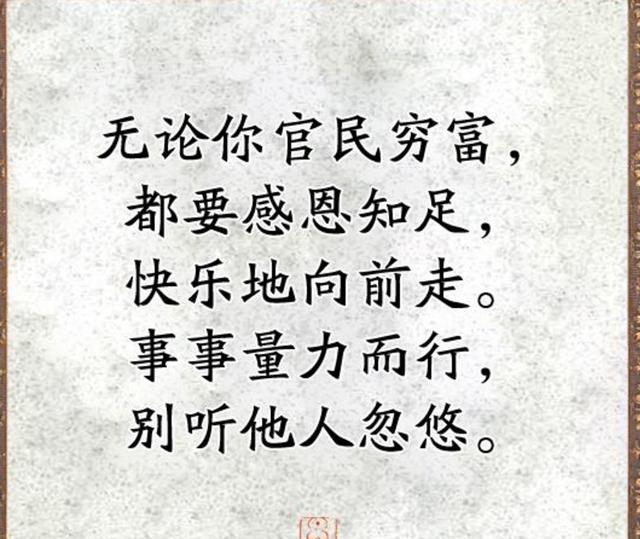 无论你官民穷富，
都要感恩知足，
快乐地向前走。
事事量力而行，
别听他人忽悠。